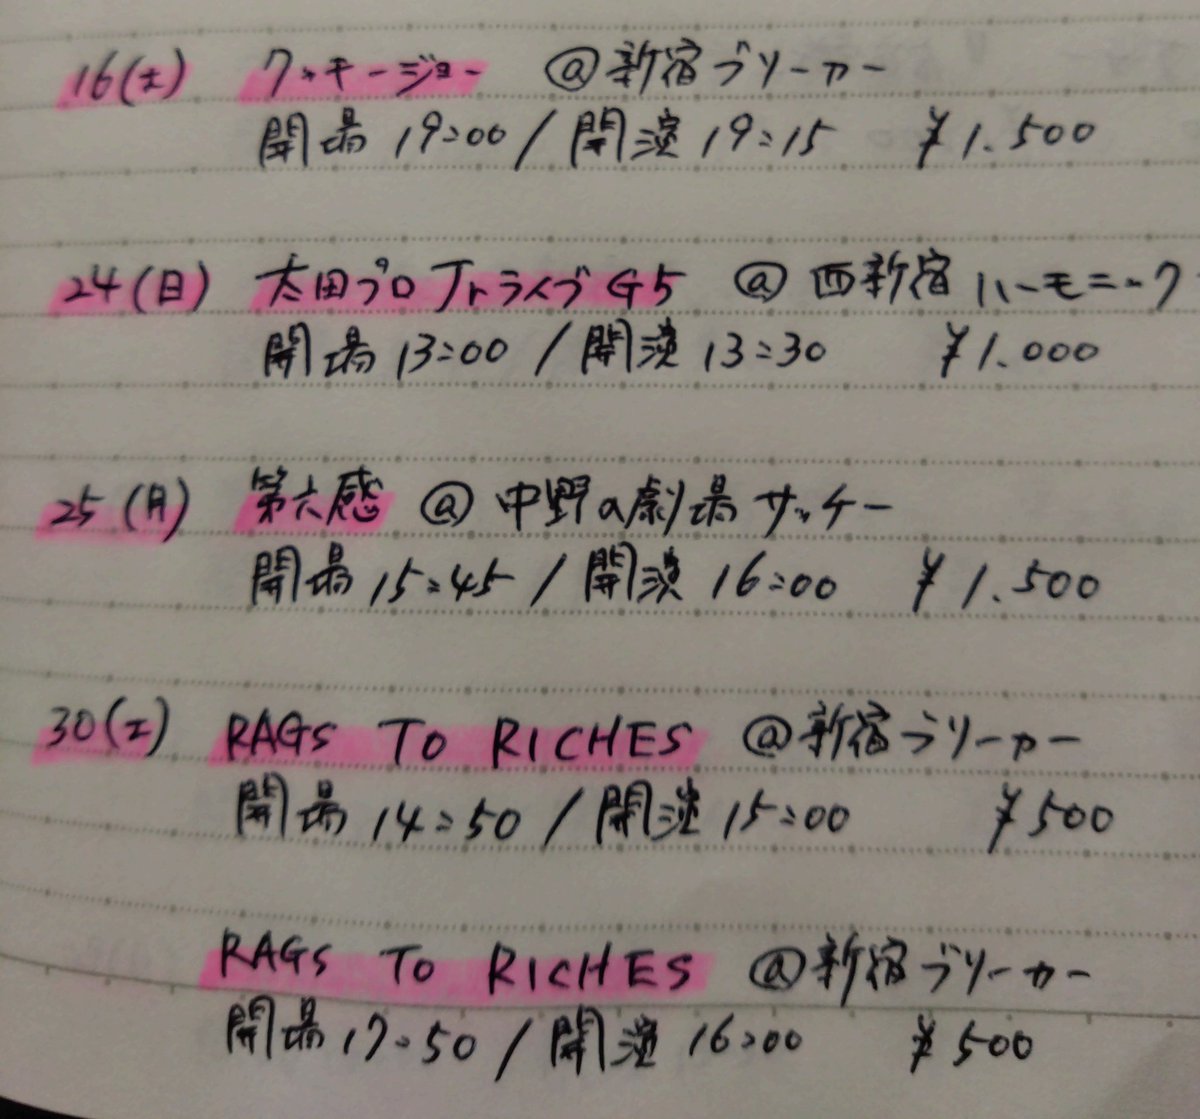 16(土) クッキージョー @新宿ブリーカー
開場 19:00 / 開演 19:15 ¥1.500
24(日) 太田プロJrライブG5 @西新宿ハーモニック
開場 13:00 / 開演 13:30 ¥1.000
25(月) 第六感 @中野の劇場サッチー
開場 15:45 / 開演 16:00 ¥1.500
30(土) RAGS TO RICHES @新宿ブリーカー
開場 14:50 / 開演 15:00 ¥500
RAGS TO RICHES @新宿ブリーカー
開場 17:50 / 開演 16:00 ¥500